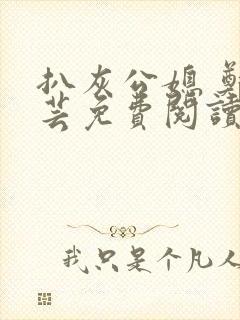 扒灰公媳 鄭
芸免費閱讀
我只是个凡人